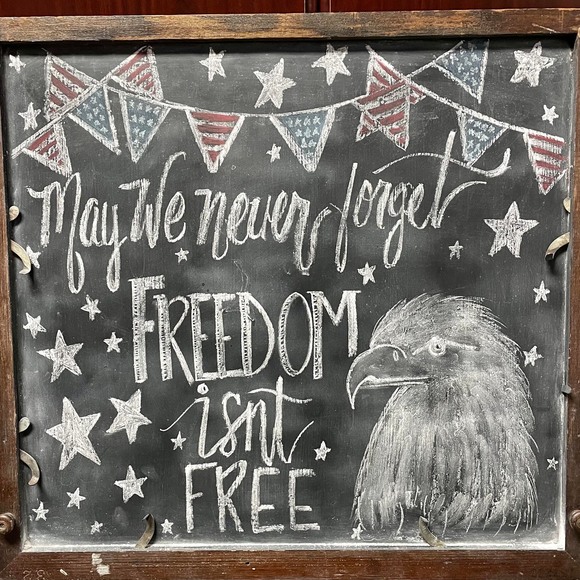 May We never forget
FREEDOM
isnt
FREE